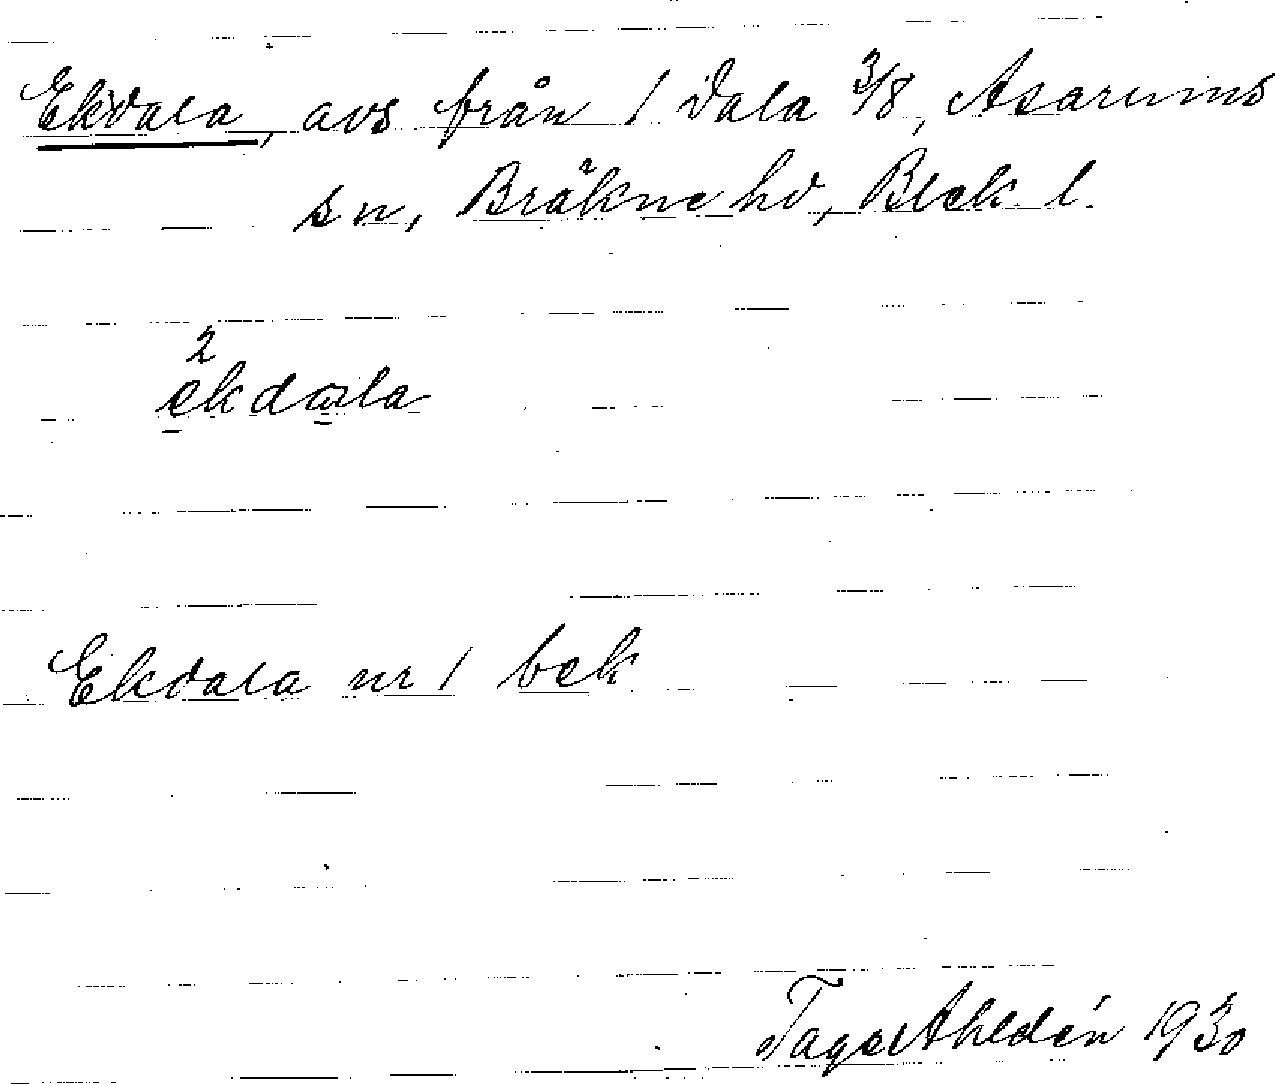 Ekdala, avs från 1 Dala 3/8, Asarums
sn, Bräkne hd, Blek. l.
2
ekdala
Ekdala nr 1 bek
Tage Ahldén 1930